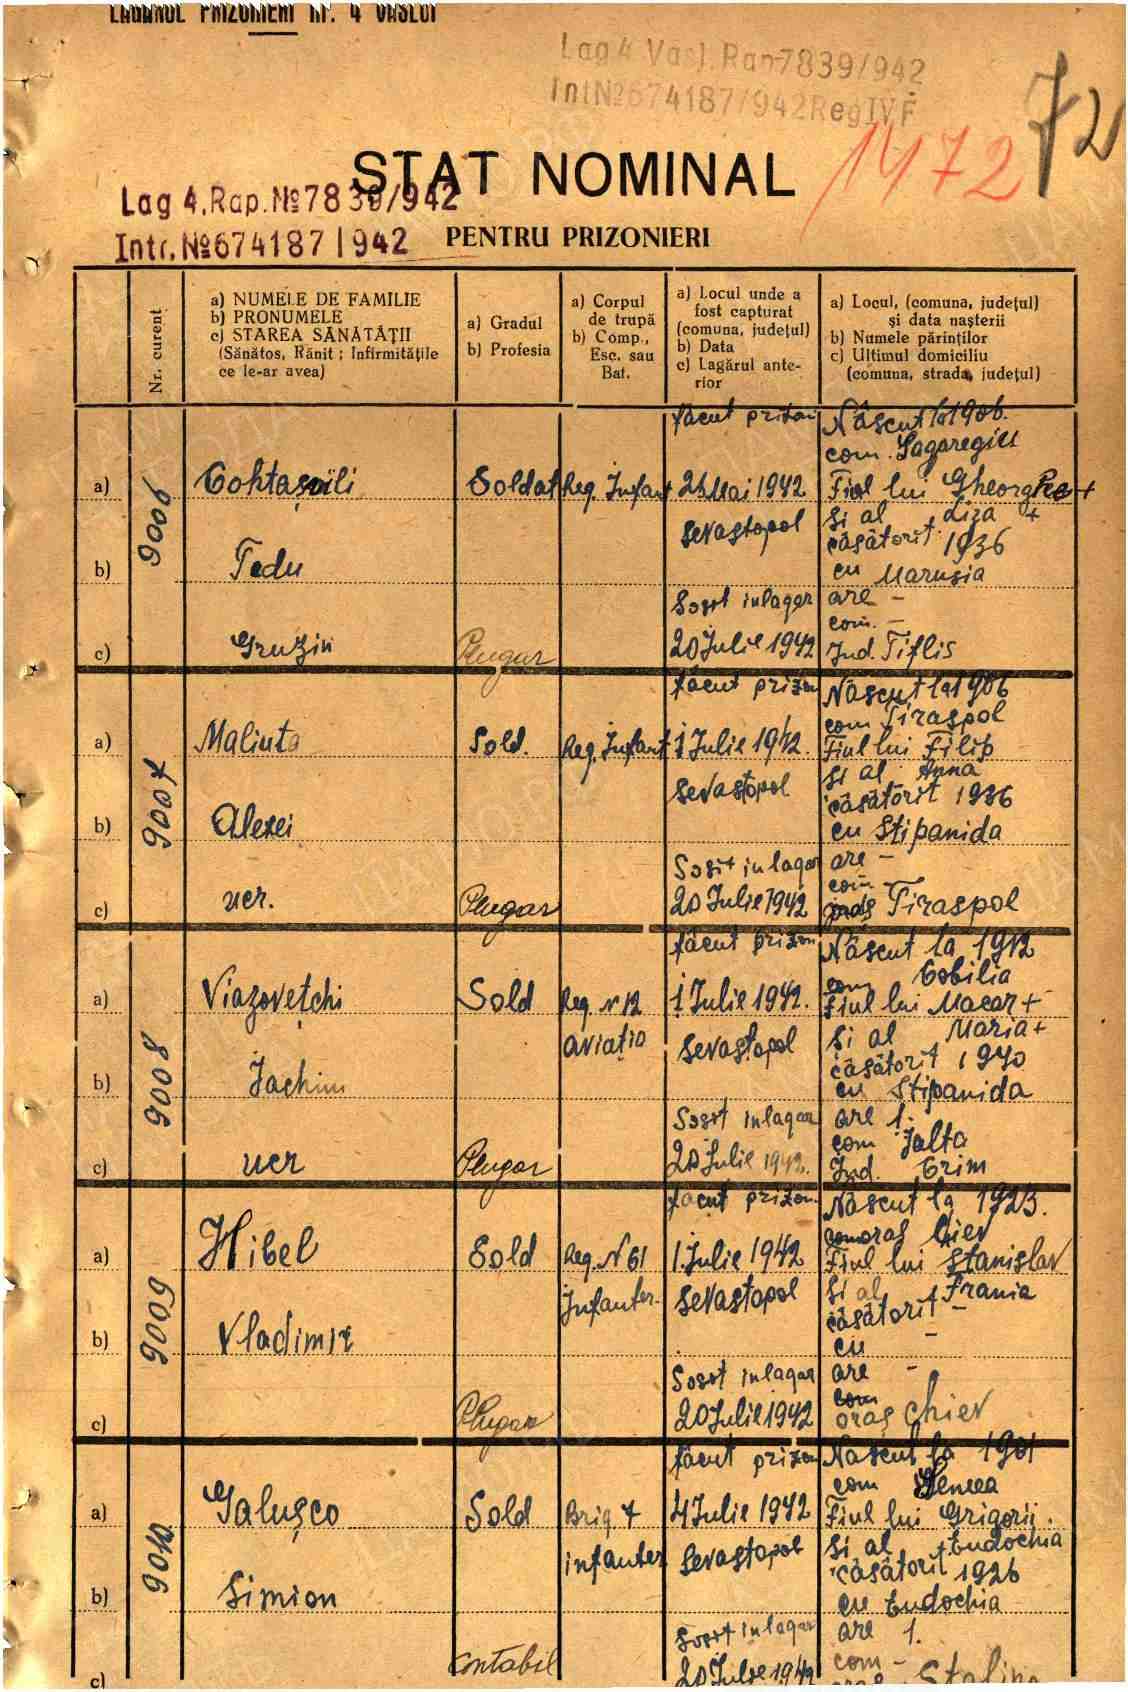 LAGĂRUL PRIZONIERI Nr. 4 VASLUI
Lag 4 Vasl. Rap 7839/942
Int № 674187/942 Reg IV F
72
1472
STAT NOMINAL
Lag 4. Rap. № 7839/942
Intr. № 674187 / 942
PENTRU PRIZONIERI
Nr. curent
a) NUMELE DE FAMILIE
b) PRONUMELE
c) STAREA SĂNĂTĂȚII
(Sănătos, Rănit ; Infirmitățile
ce le-ar avea)
a) Gradul
b) Profesia
a) Corpul
de trupă
b) Comp.,
Esc. sau
Bat.
a) Locul unde a
fost capturat
(comuna, județul)
b) Data
c) Lagărul ante-
rior
a) Locul, (comuna, județul)
și data nașterii
b) Numele părinților
c) Ultimul domiciliu
(comuna, strada, județul)
9006
a)
b)
c)
Tedu
Gruzin
Soldat
Plugar
Reg. Infant
făcut prizon
Mai 1942
Sevastopol
Sosit in lagar
20 Iulie 1942
Născut la 1906.
com. Sagaregiu
Fiul lui Gheorghe +
Si al Liza +
căsătorit 1936
cu Marusia
are -
com. -
Jud. Tiflis
9007
a)
b)
c)
Maliuta
Alexei
ucr.
Sold.
Plugar
Reg. Infant
făcut prizon
1 Iulie 1942.
Sevastopol
Sosit in lagar
20 Iulie 1942
Născut la 1906
com Tiraspol
Fiul lui Filip
Si al Anna
căsătorit 1936
cu Stipanida
are -
com. -
Tiraspol
9008
a)
b)
c)
Viazovețchi
Iachim
ucr
Sold
Plugar
Reg. N 12
aviatio
făcut prizon
1 Iulie 1942.
Sevastopol
Sosit in lagar
20 Iulie 1942.
Născut la 1912
com Cobilia
Fiul lui Macar +
Si al Maria +
căsătorit 1940
cu Stipanida
are 1.
com Ialta
Jud. Crim
9009
a)
b)
c)
Hibel
Vladimir
Sold
Plugar
Reg. N 61
Infanter.
făcut prizon.
1. Iulie 1942
Sevastopol
Sosit in lagar
20 Iulie 1942
Născut la 1923.
oraș Chiev
Fiul lui Stanislav
Si al Frania
căsătorit -
cu -
are -
com
oraș Chiev
9010
a)
b)
c)
Galușco
Simion
Sold
contabil
Brig 7
infanter
făcut prizon
4 Iulie 1942
Sevastopol
Sosit in lagar
20 Iulie 1942
Născut la 1901
com
Fiul lui Grigorii.
Si al Eudochia
căsătorit 1926
cu Eudochia
are 1.
com -